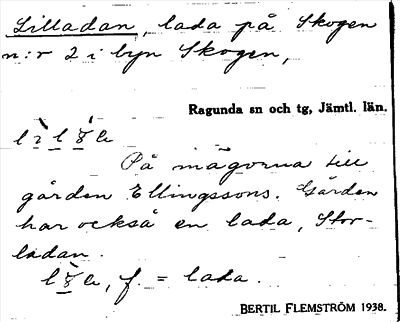 Lilladan, lada på Skogen
n:r 2 i byn Skogen,
Ragunda sn och tg, Jämtl. län.
På mägorna till
gården Ellingssons. Gården
har också en lada, Stor-
ladan.
f. = lada.
BERTIL FLEMSTRÖM 1938.